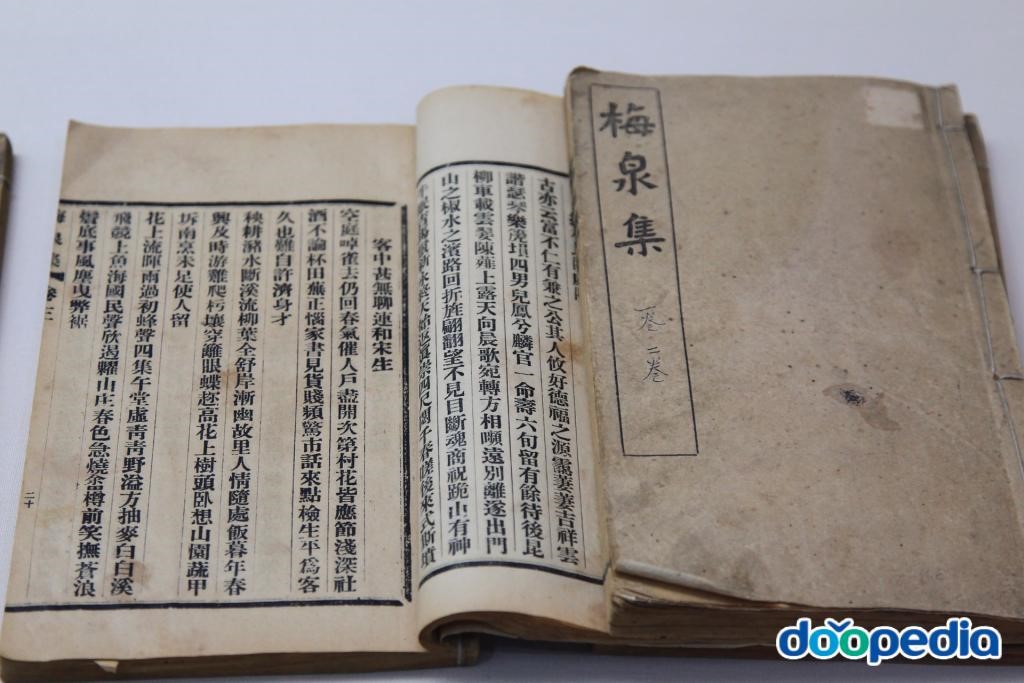 梅泉集
一卷 二卷
古亦云富不仁有兼之公其人攸好德福之源靄萋萋吉祥雲
諧瑟琴樂箎塤四男兒鳳兮麟官一命壽六旬留有餘待後昆
柳車載雲髮陳薤上露天向晨歌宛轉方相嚬遠別離遂出門
山之椒水之濱路回折旌翩翻望不見目斷魂商祝跪山有神
客中甚無聊連和宋生
空庭啅雀去仍回春氣催人戶盡開次第村花皆應節淺深社
酒不論杯田蕪正惱家書見貨賤頻驚市話來點檢生平爲客
久也難自許濟身才
秧耕瀦水斷溪流柳葉全舒岸漸幽故里人情隨處飯暮年春
興及時游雞爬朽壤穿籬眼蝶趂高花上樹頭臥想山園蔬甲
坼南烹未足使人留
花上流暉雨過初蜂聲四集午堂虛靑靑野溢方抽麥白白溪
飛競上魚海國民聲欣遏糶山庄春色急燒畬樽前笑撫蒼浪
鬢底事風塵曳弊裾
梅泉集 卷三
二十
doopedia